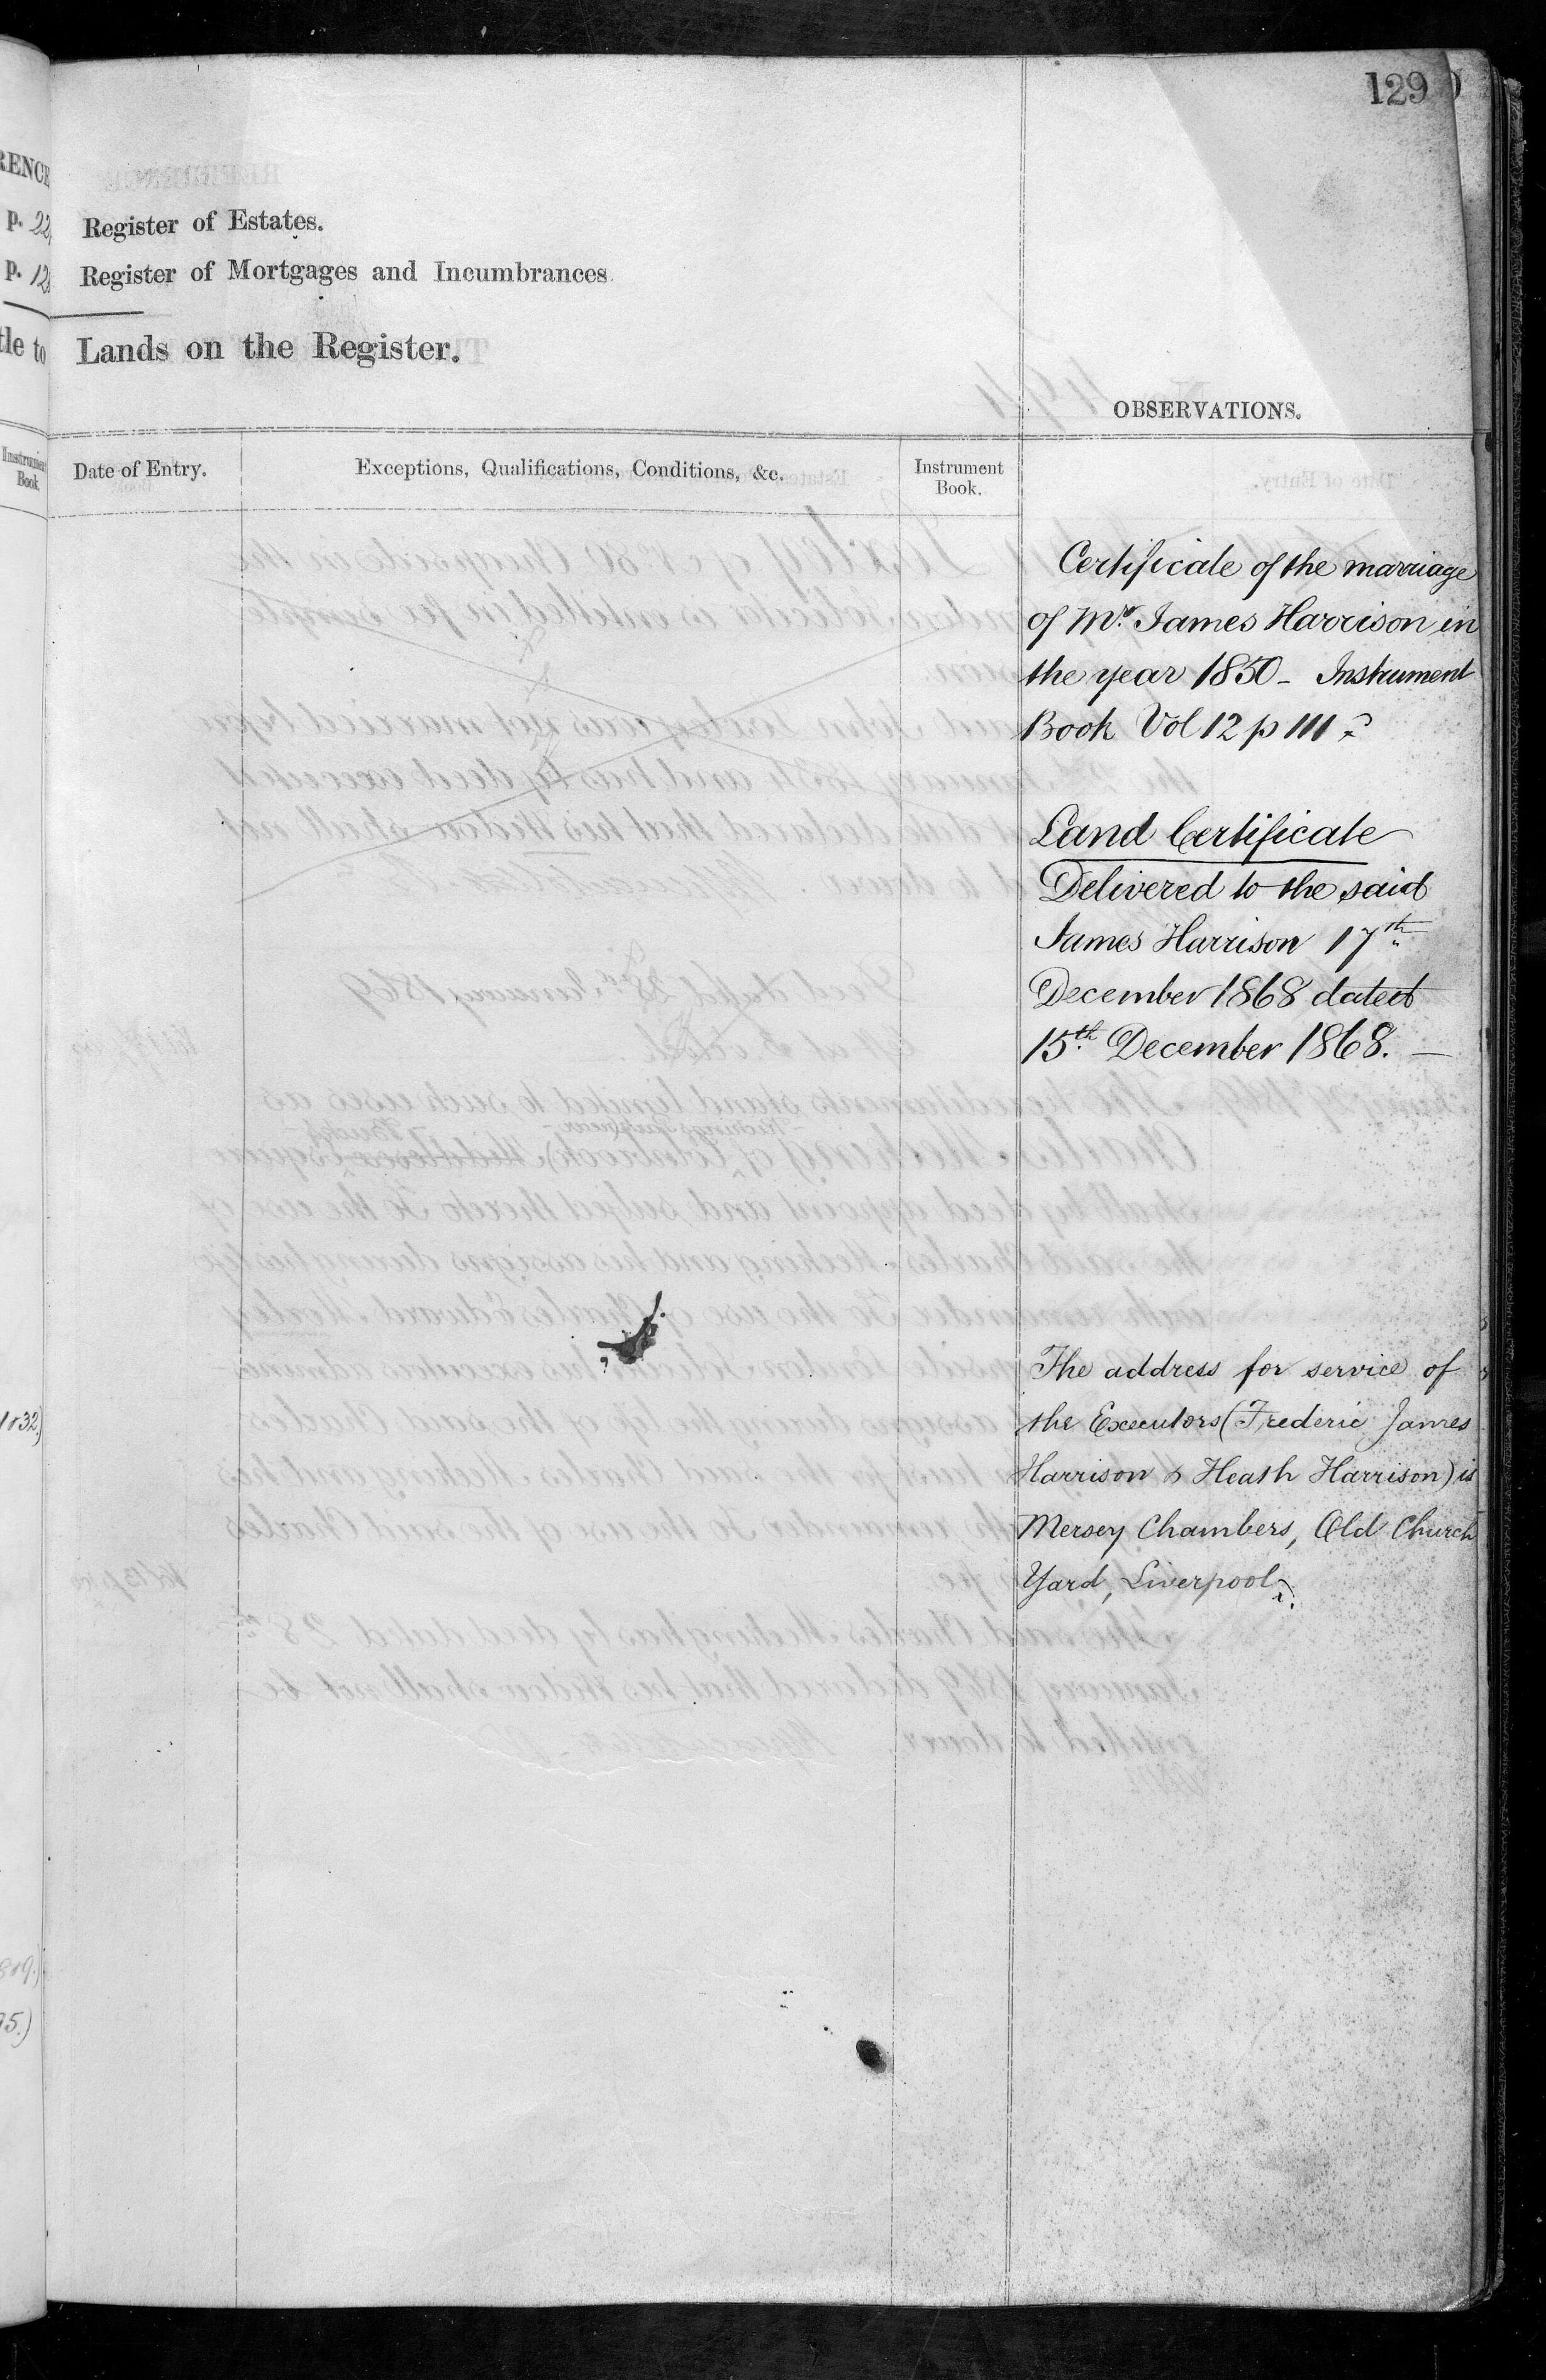 129
RENCE
p. 22
Register of Estates.
p. 12
Register of Mortgages and Incumbrances.
tle to
Lands on the Register.
OBSERVATIONS.
Instrument
Book
Date of Entry.
Exceptions, Qualifications, Conditions, &c.
Instrument
Book.
Certificate of the marriage
of Mr. James Harrison in
the year 1850 - Instrument
Book Vol 12 p 111
Land Certificate
Delivered to the said
James Harrison 17th
December 1868 dated
15th December 1868. —
The address for service of
the Executors (Frederic James
Harrison & Heath Harrison) is
Mersey Chambers, Old Church
Yard, Liverpool.